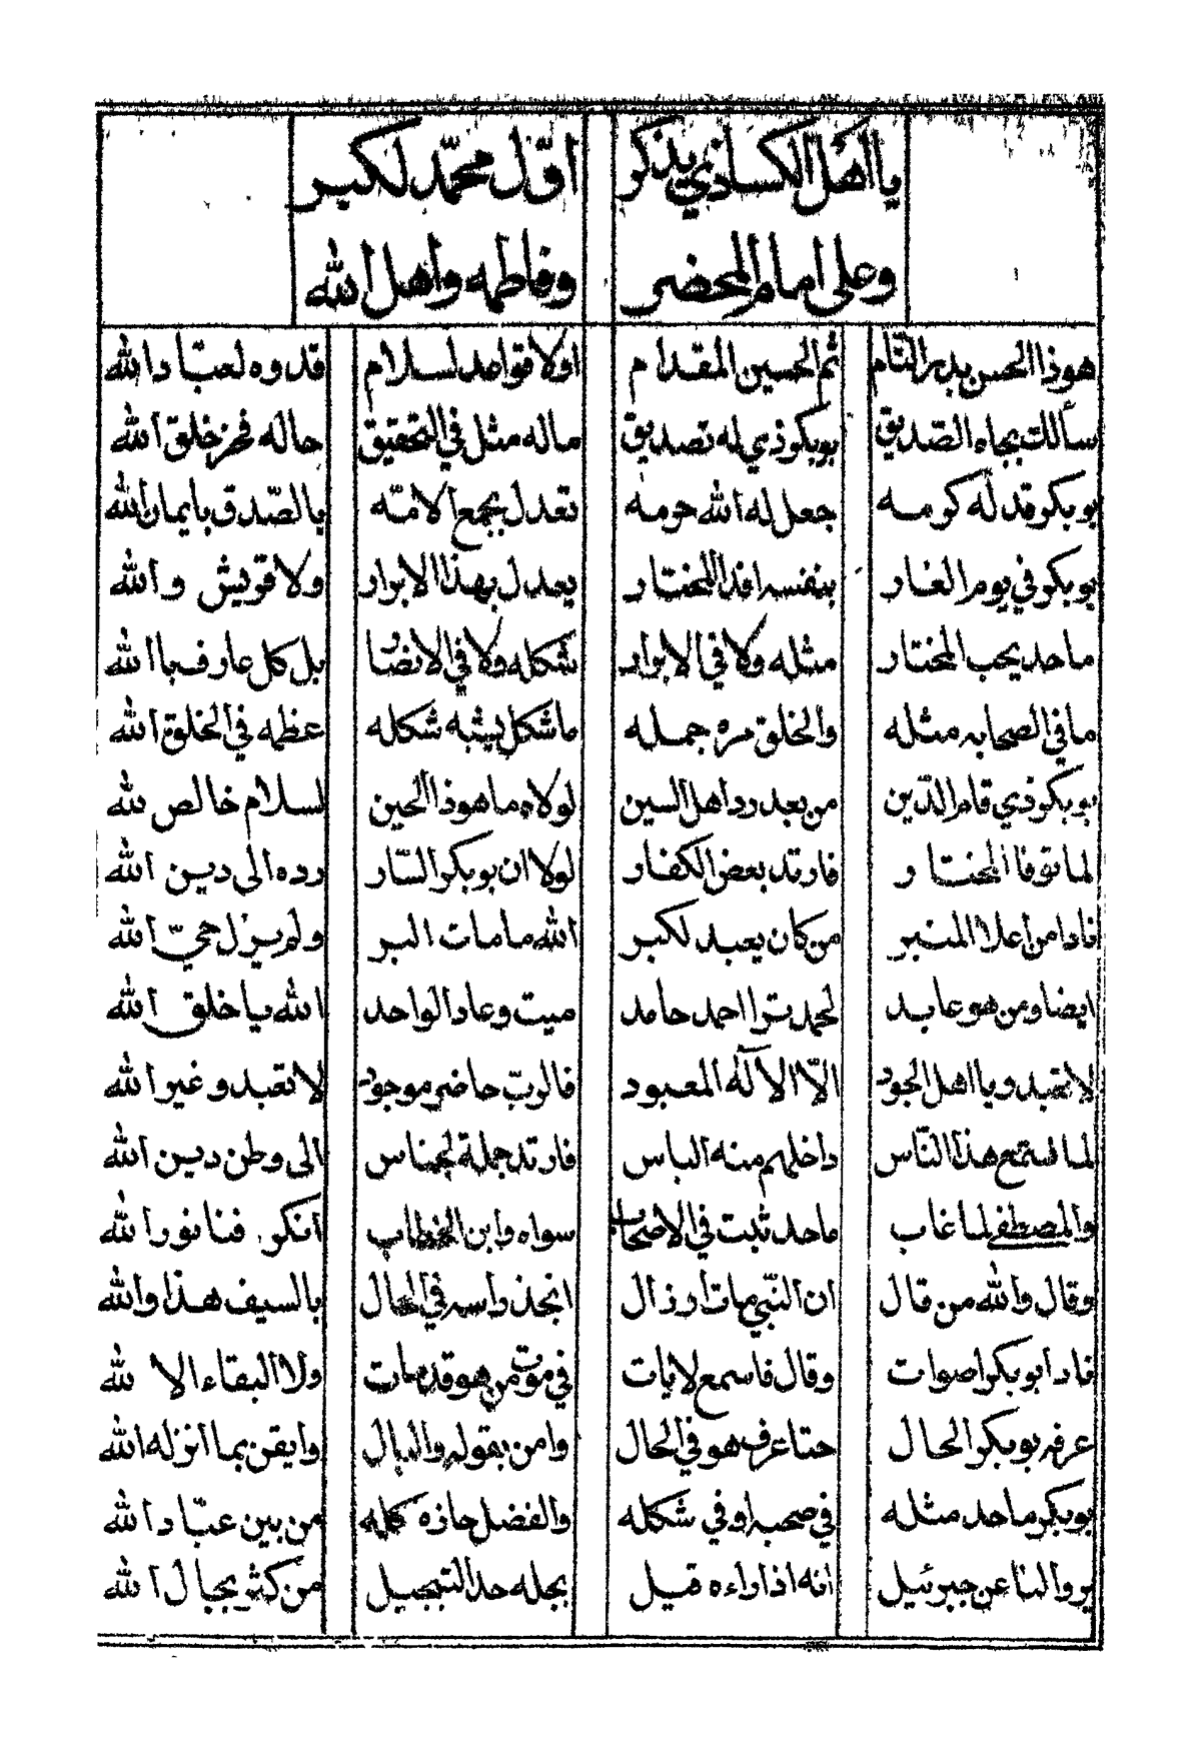 يا اهل الكسا ذي يذكر اول محمّد لكبر
وعلى امام المحضر وفاطمه واهل الله
هوذا الحسن بدر التّام ثم الحسين المقدام اولا قواعد لسلام قدوه لعبّاد الله
سألك بجاه الصّديق بوبكر ذي له تصديق ماله مثل في التحقيق حاله فخر خلق الله
بوبكر قد له كرمه جعل له الله حرمه تعدل بجمع الامّه بالصّدق بايمان الله
بوبكر في يوم الغار بنفسه افدا المختار يعدل بهذا الابرار ولا قريش والله
ماحد يحب المختار مثله ولا في الابرار شكله ولا في الانصار بل كل عارف باالله
مافي الصحابه مثله والخلق مره جمله ماشكل يشبه شكله عظمه في الخلق الله
بوبكر ذي قام الدّين من بعد رد اهل السين لولاه ما هوذا الحين لسلام خالص لله
لما توفا المختار فارتد بعض الكفار لولا ان بوبكر السّار رده الى دين الله
فادا من اعلا المنبر من كان يعبد لكبر الله ما مات البر ولم يزل حيّ الله
ايضا ومن هو عابد لحمد ترا احمد حامد ميت وعاد الواحد الله يا خلق الله
لا تعبدو يا اهل الجود الّا الاله المعبود فالربّ حاضر موجود لا تعبدو غير الله
لما استمع هذا النّاس داخلهم منه الباس فارتد جملة لجناس الى وطن دين الله
والمصطفى لما غاب ماحد ثبت في الاصحاب سواه وابن الخطاب انكر فنا نور الله
وقال والله من قال ان النّبي مات او زال انجذ راسه في الحال بالسيف هذا والله
فادا ابوبكر اصوات وقال فاسمع لايات في موت من هو قد مات ولا البقاء الا لله
عرفه بوبكر الحال حتا عرف هو في الحال وامن بقوله والبال وايقن بما انزله الله
بوبكر ماحد مثله في صحبه او في شكله والفضل حازه كله من بين عبّاد الله
يروا لنا عن جبرئيل انه اذا راءه قيل بجله حد التبجيل من كثر بجال الله